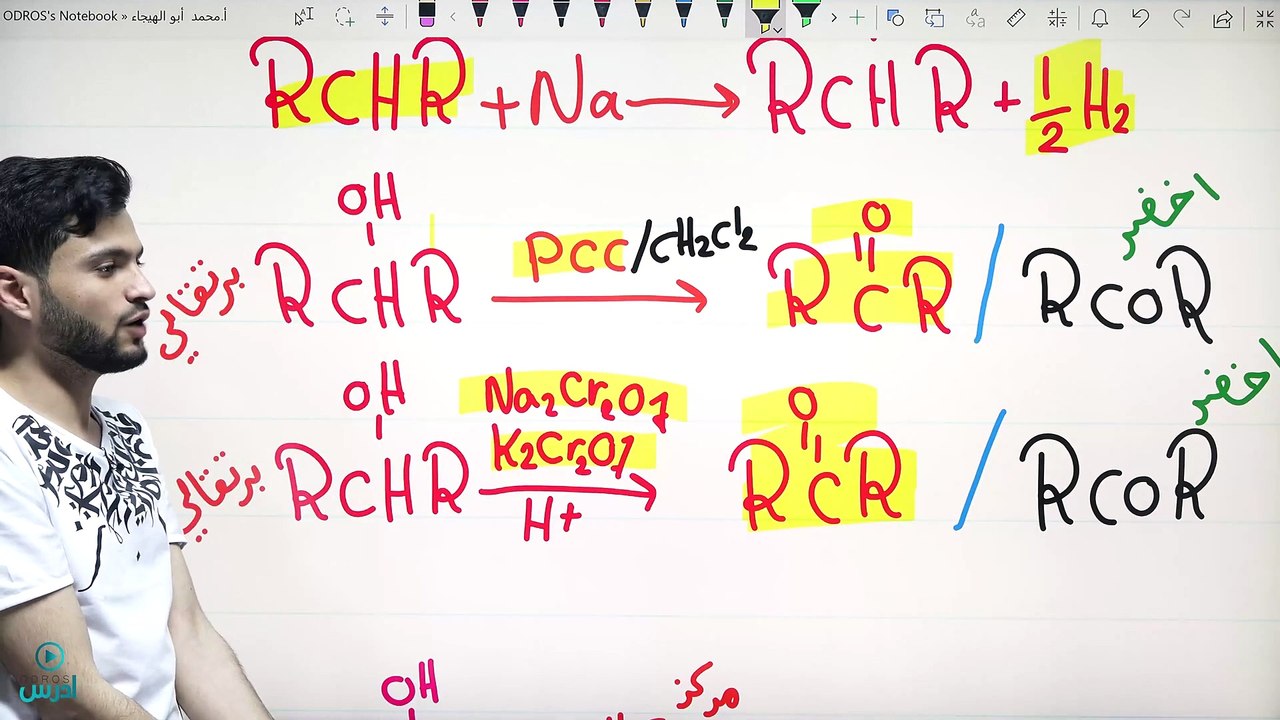 ODROS's Notebook » أ.محمد أبو الهيجاء
RCHR + Na → RCHR + 1/2 H2
OH
برتقالي RCHR PCC/CH2Cl2 → O
RCR / RCOR اخضر
OH
برتقالي RCHR Na2Cr2O7
K2Cr2O7
H+ → O
RCR / RCOR اخضر
OH
مركز
ODROS
ادرس